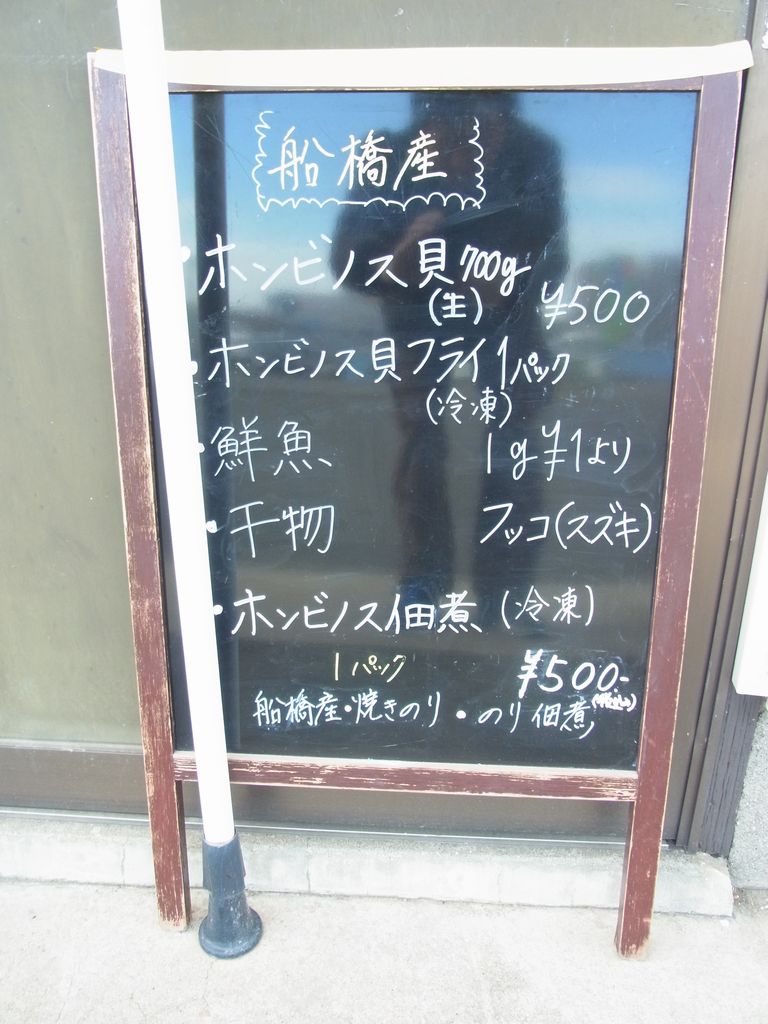 船橋産
・ホンビノス貝700g
(生) ¥500
・ホンビノス貝フライ1パック
(冷凍)
・鮮魚 1g¥1より
・干物 フッコ(スズキ)
・ホンビノス佃煮(冷凍)
1パック ¥500-
(税込)
船橋産・焼きのり・のり佃煮